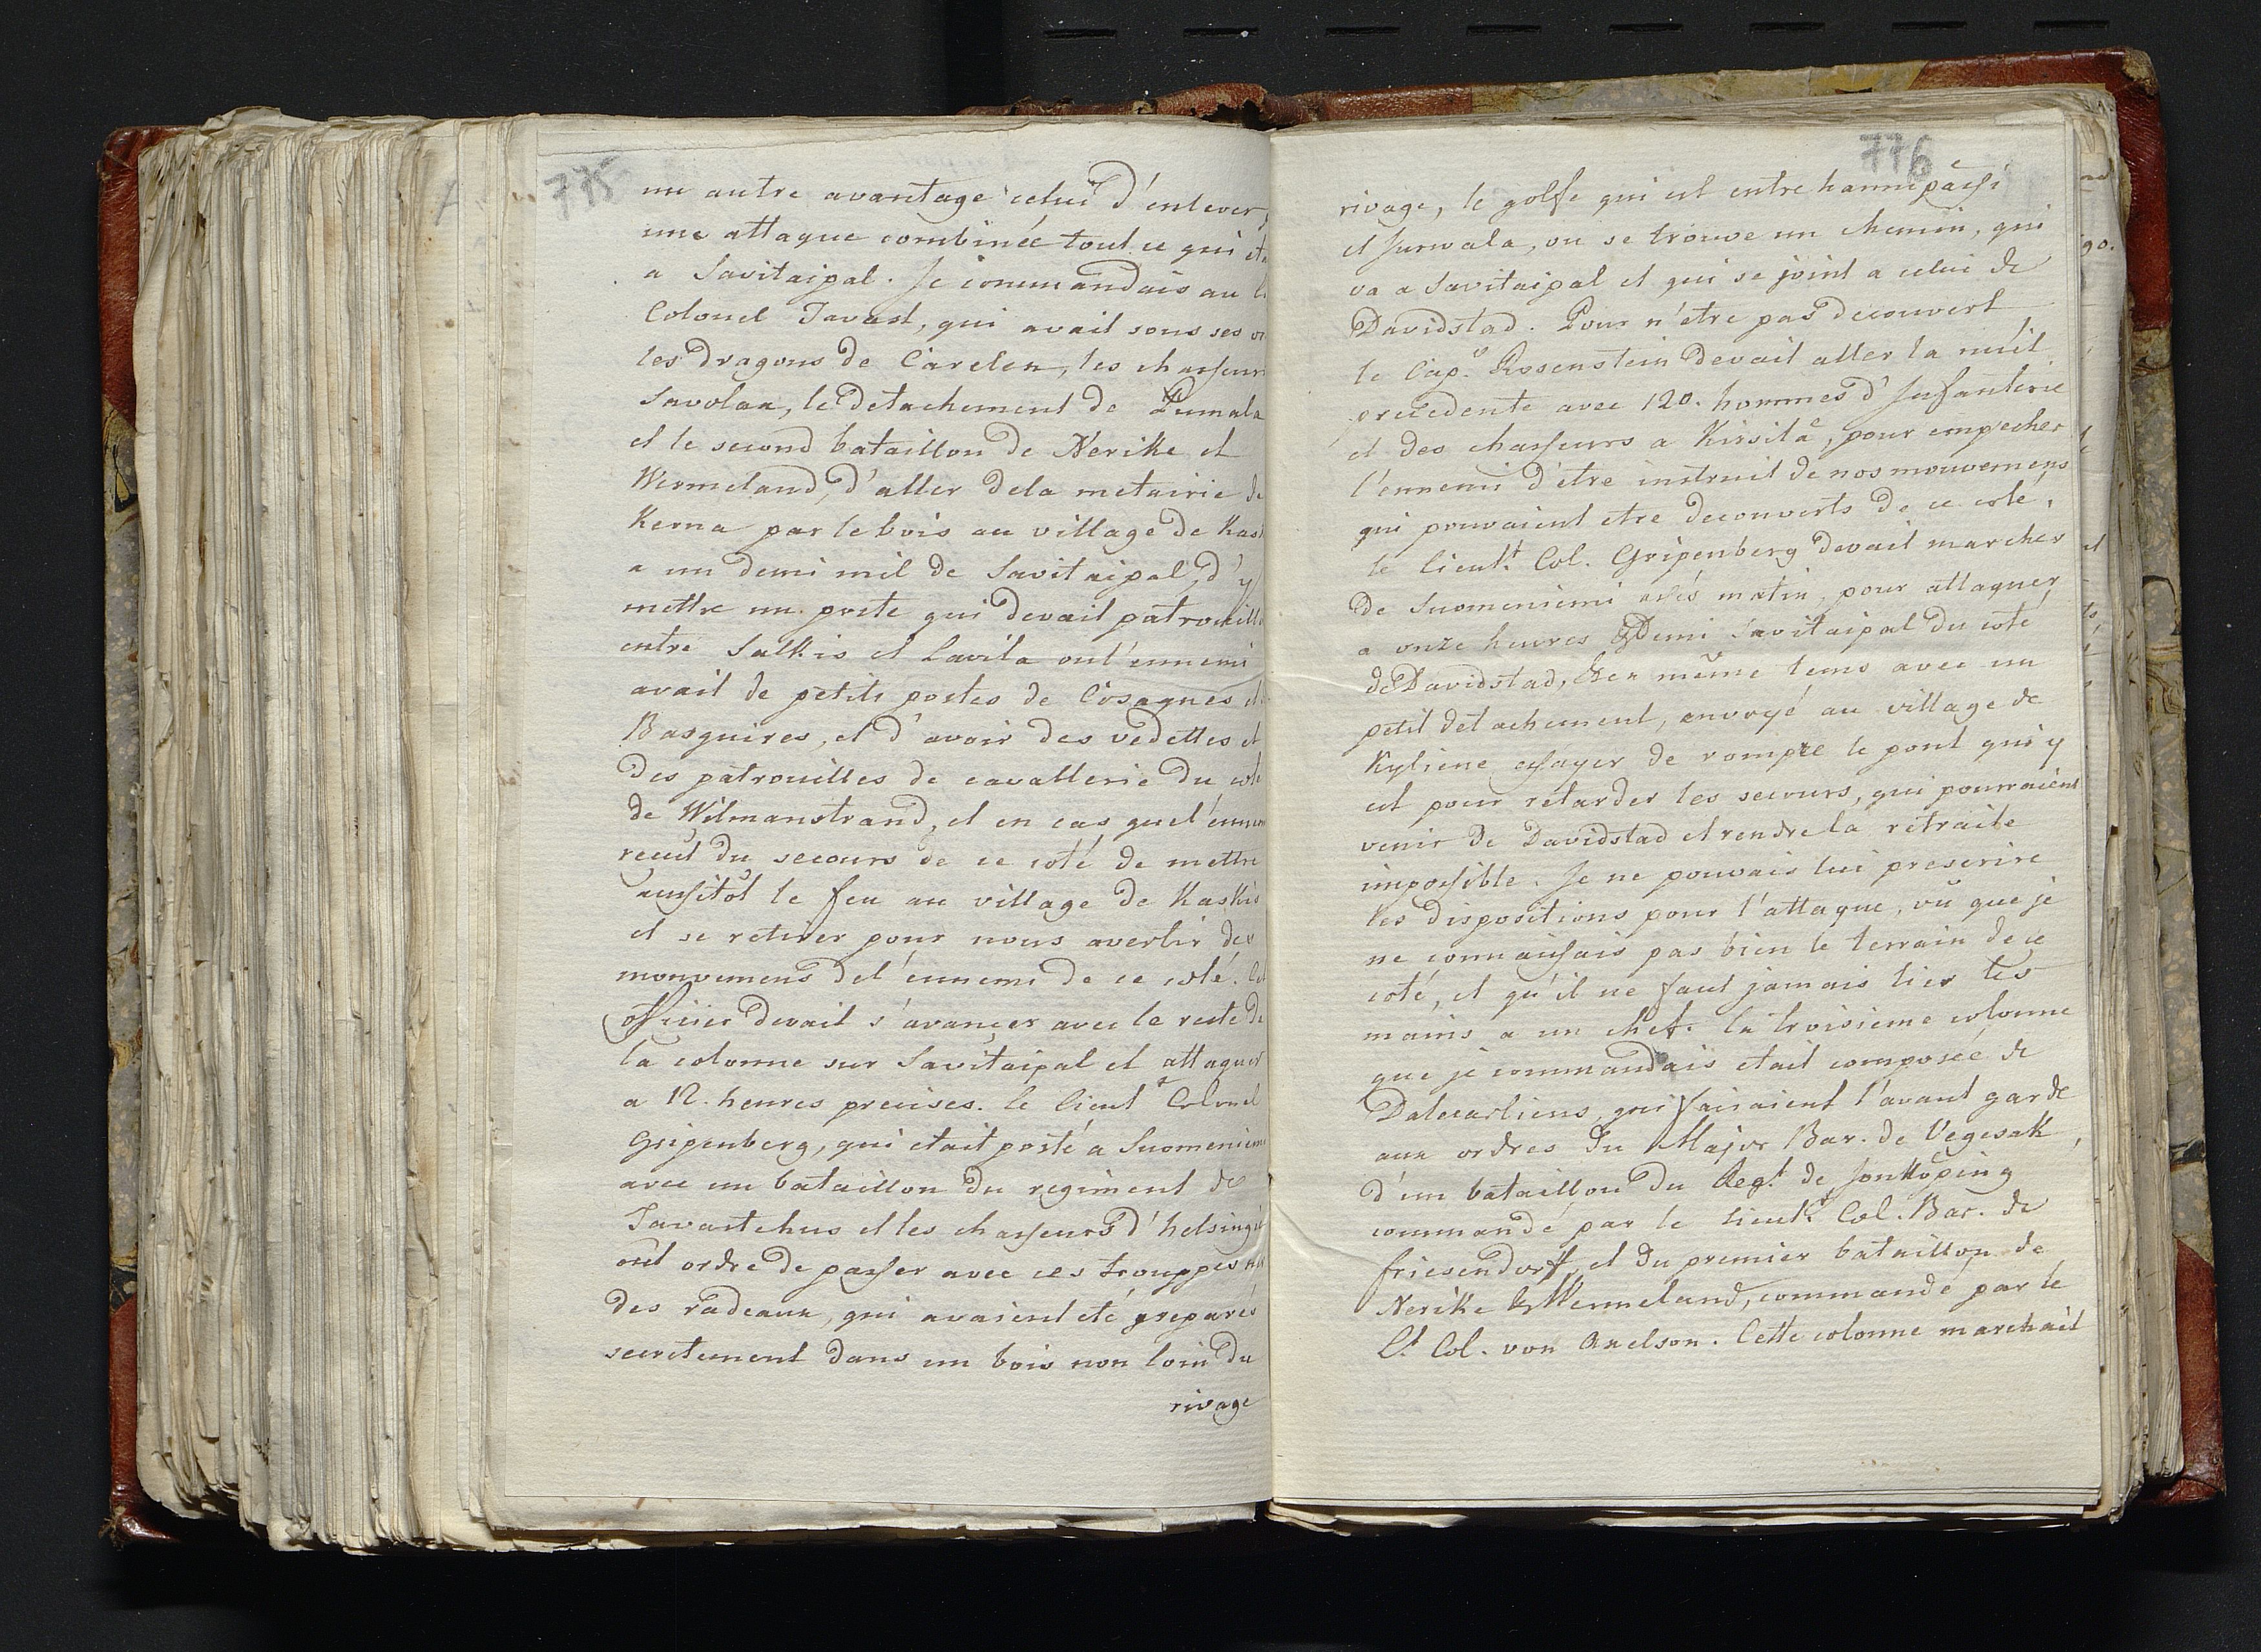 775
un autre avantage celui d'enlever
une attaque combinée tout ce qui
a Savitaipal. Je commandais au
Colonel Tavast, qui avait sous ses
les dragons de Carelen, les chasseurs
Savolax, le detachement de Pumala
et le second bataillon de Nerike et
Wermeland, d'aller dela metairie de
Kerna par le bois au village de
a un demi mil de Savitaipal, d'y
mettre un poste qui devait patrouille
entre Salkis et Lavila ou l'ennemi
avait de petits postes de Cosaques
Basquires, et d'avoir des vedettes et
des patrouilles de cavallerie du coté
de Wilmanstrand, et en cas quel'ennem
recut du secours de ce coté de mettre
aussitôt le feu au village de Kaskis
et se retirer pour nous avertir des
mouvemens del'ennemi de ce coté.
officier devait s'avançer avec le reste de
la colonne sur Savitaipal et attaquer
a 12. heures precises. le lieut.t Colonel
Gripenberg, qui etait posté a Suomeniemi
avec un bataillon du regiment de
Tavastehus et les chasseurs d'helsing
out ordre de passer avec ces trouppes
des radeaux, qui avaient été preparés
secretement dans un bois non loin du
rivage
776
rivage, le golfe qui est entre hannipässi
et Jurvala, ou se trouve un chemin, qui
va a Savitaipal et qui se joint a celui de
Davidstad. Pour n'etre pas decouvert
le Cap.e Rosenstein devait aller la nuit
precedente avec 120. hommes d'Infanterie
et des chasseurs a Kirsilä, pour empecher
l'ennemi d'etre instruit de nos mouvemens
qui pouvaient etre decouverts de ce coté,
le lieut.t Col. Gripenberg devait marcher
de Suomeniemi assés matin, pour attaquer
a onze heures & demi Savitaipal du coté
de Davidstad, & en même tems avec un
petit detachement, envoyé au village de
Kyliene essayer de rompre le pont qui y
est pour retarder les secours, qui pourraient
venir de Davidstad et rendre la retraite
impossible. Je ne pouvais lui prescrire
les dispositions pour l'attaque, vû que je
ne connaissais pas bien le terrain de ce
coté, et qu'il ne faut jamais lier les
mains a un chef. la troisieme colonne
que je commandais etait composée de
Dalecarliens, qui faisaient l'avant garde
aux ordres du Major Bar. de Vegesak,
d'un bataillon du Reg.t de Jonköping
commandé par le lieut.t Col. Bar. de
friesendorff, et du premier bataillon de
Nerike & Wermeland, commandé par le
L.t Col. von Axelson. Cette colonne marchait